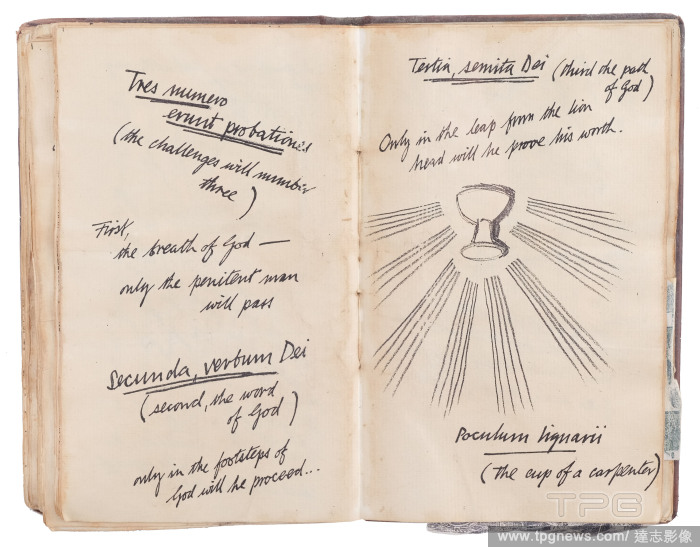 Tres numero
erunt probationes
(the challenges will number
three)
First,
the breath of God —
only the penitent man
will pass
Secunda, verbum Dei
(second, the word
of God)
only in the footsteps of
God will he proceed...
Tertia, semita Dei (third the path
of God)
Only in the leap from the lion
head will he prove his worth.
Poculum lignarii
(the cup of a carpenter)
TPG
www.tpgnews.com/ 達志影像